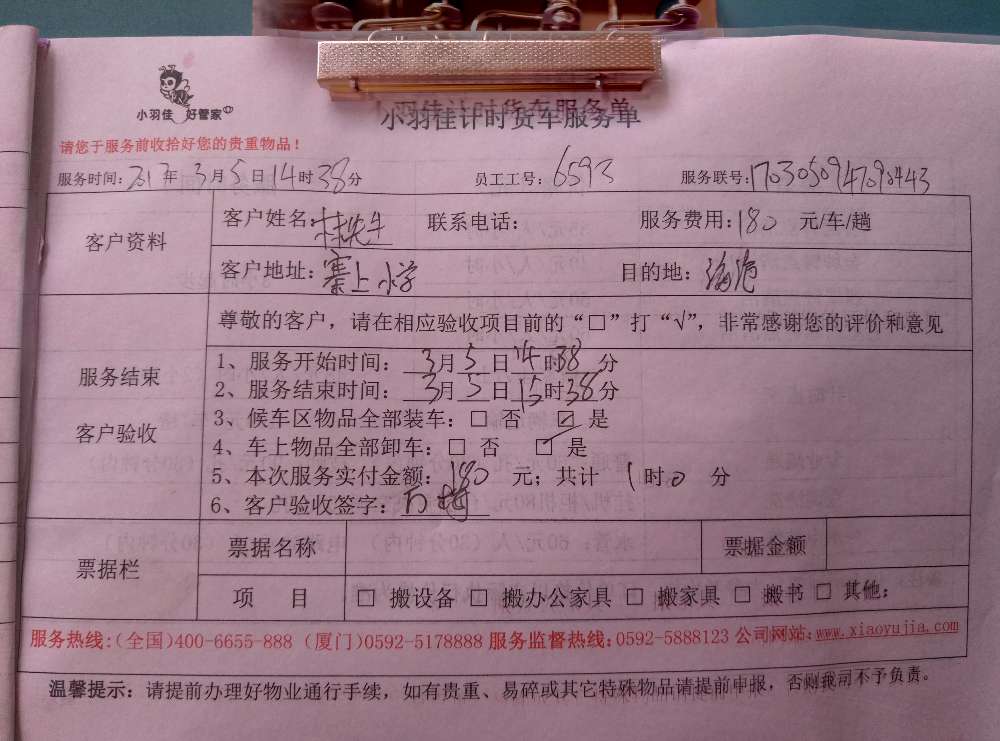 小羽佳 好管家
小羽佳计时货车服务单
请您于服务前收拾好您的贵重物品！
服务时间：2017年3月5日14时38分 员工工号：6593 服务联号：17030509147090443
客户资料
客户姓名：林先生 联系电话： 服务费用：180 元/车/趟
客户地址：寨上小学 目的地：海沧
服务结束
客户验收
尊敬的客户，请在相应验收项目前的“□”打“√”，非常感谢您的评价和意见
1、服务开始时间：3月5日14时38分
2、服务结束时间：3月5日15时38分
3、候车区物品全部装车：□ 否 ☑ 是
4、车上物品全部卸车：□ 否 ☑ 是
5、本次服务实付金额：180 元；共计 1时0 分
6、客户验收签字：
票据栏
票据名称 票据金额
项 目 □ 搬设备 □ 搬办公家具 □ 搬家具 □ 搬书 □ 其他：
服务热线：(全国)400-6655-888 (厦门)0592-5178888 服务监督热线：0592-5888123 公司网站：www.xiaoyujia.com
温馨提示：请提前办理好物业通行手续，如有贵重、易碎或其它特殊物品请提前申报，否则我司不予负责。